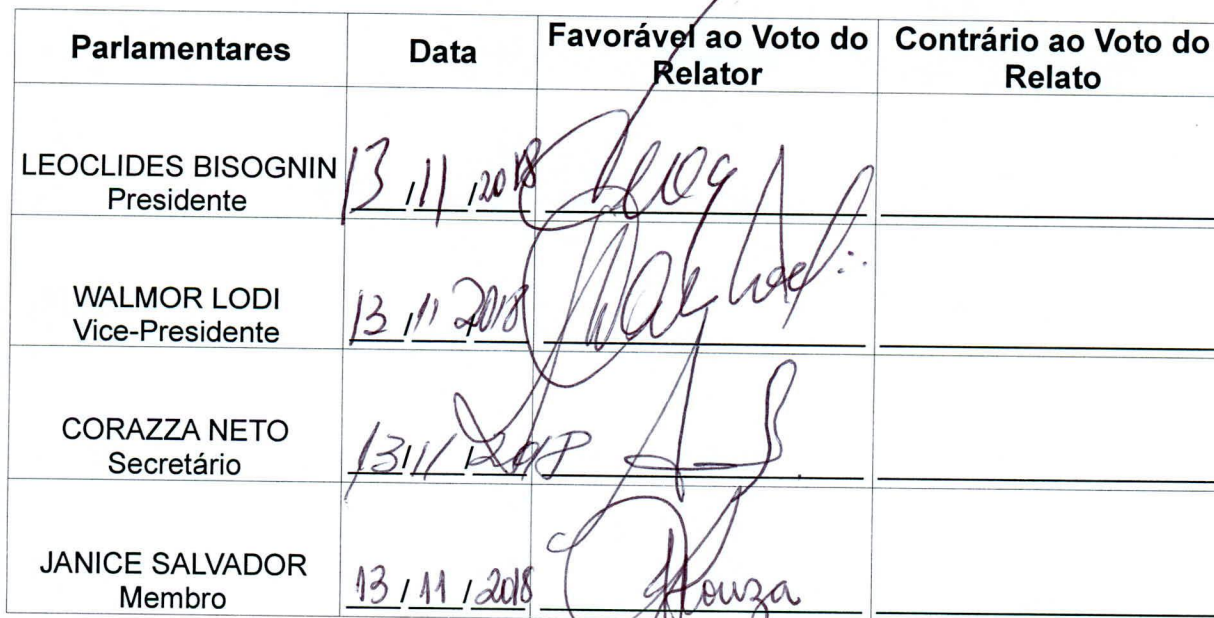 Parlamentares Data Favorável ao Voto do Relator Contrário ao Voto do Relato
LEOCLIDES BISOGNIN
Presidente
13/11/2018
WALMOR LODI
Vice-Presidente
13/11/2018
CORAZZA NETO
Secretário
13/11/2018
JANICE SALVADOR
Membro
13/11/2018
Souza